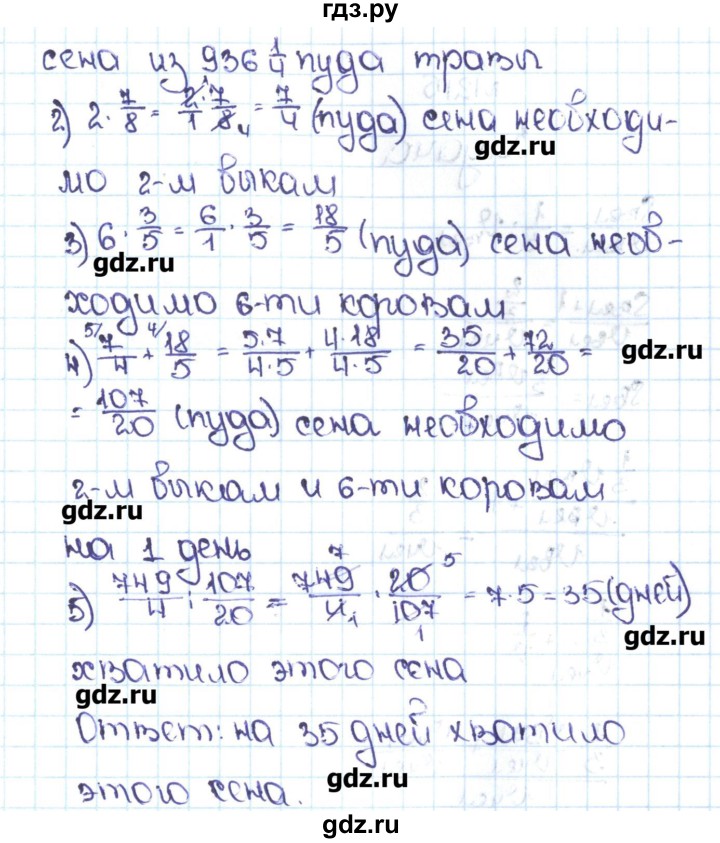 гдз.ру
сена из 936 1/4 пуда травы
2) 2 · 7/8 = 2·7/1 8 4 = 7/4 (пуда) сена необходи-
gdz.ru
мо 2-м выкам
3) 6 · 3/5 = 6/1 · 3/5 = 18/5 (пуда) сена необ-
gdz.ru
ходимо 6-ти коровам
4) 5/ 7/4 + 4/ 18/5 = 5·7/4·5 + 4·18/4·5 = 35/20 + 72/20 =
gdz.ru
= 107/20 (пуда) сена необходимо
2-м выкам и 6-ти коровам
gdz.ru
на 1 день
5) 749/4 : 107/20 = 749 7/4 1 · 20 5/107 1 = 7·5 = 35 (дней)
gdz.ru
хватило этого сена
gdz.ru
Ответ: на 35 дней хватило
gdz.ru
этого сена.
gdz.ru